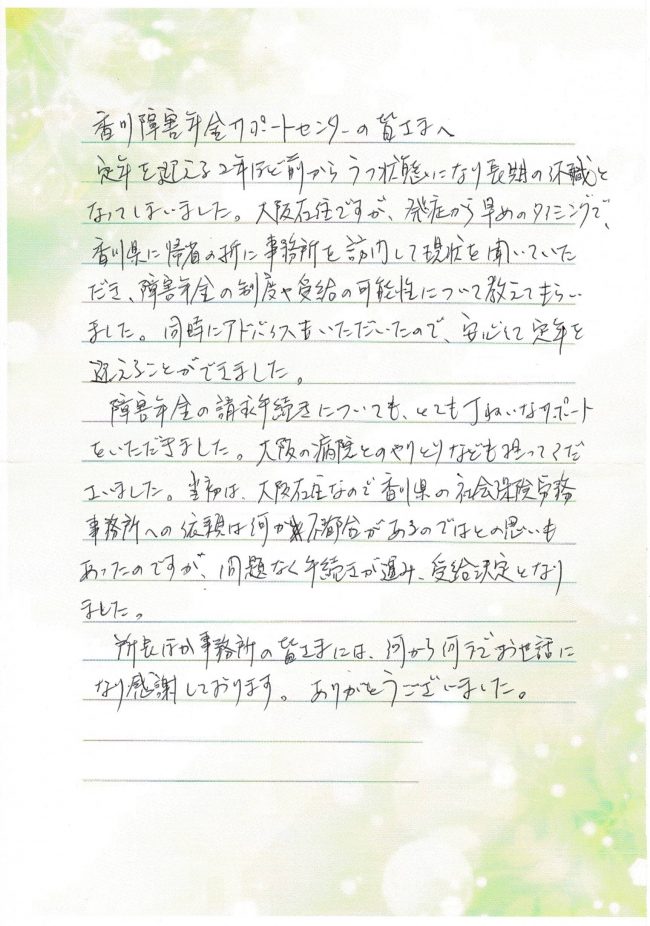 香川障害年金サポートセンターの皆さまへ
定年を迎える2年ほど前からうつ状態になり長期の休職と
なってしまいました。大阪在住ですが、発症から早めのタイミングで、
香川県に帰省の折に事務所を訪問して現状を聞いていた
だき、障害年金の制度や受給の可能性について教えてもらい
ました。同時にアドバイスもいただいたので、安心して定年を
迎えることができました。
障害年金の請求手続きについても、とても丁ねいなサポート
をいただきました。大阪の病院とのやりとりなども担ってくだ
さいました。当初は、大阪在住なので香川県の社会保険労務
事務所への依頼は何か不都合があるのではとの思いも
あったのですが、問題なく手続きが進み、受給決定となり
ました。
所長ほか事務所の皆さまには、何から何までお世話に
なり感謝しております。ありがとうございました。